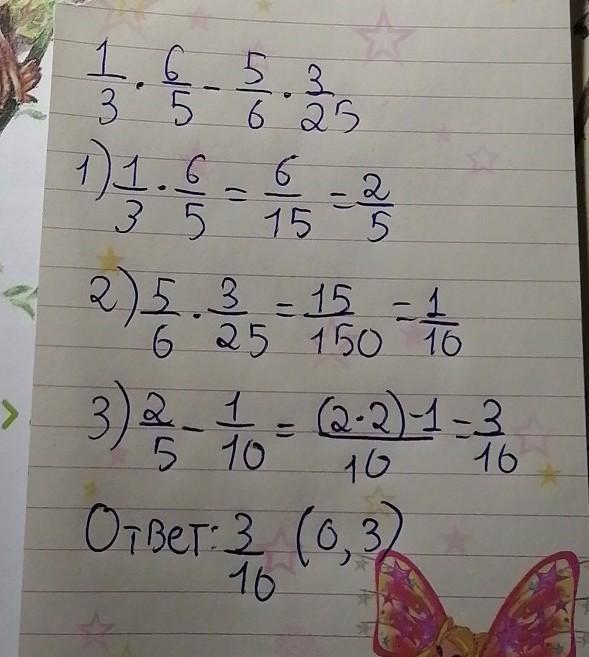 1/3 · 6/5 - 5/6 · 3/25
1) 1/3 · 6/5 = 6/15 = 2/5
2) 5/6 · 3/25 = 15/150 = 1/10
3) 2/5 - 1/10 = (2·2)-1/10 = 3/10
Ответ: 3/10 (0,3)